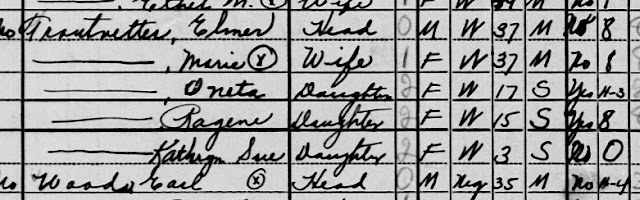 Ethel M. Wife 1 F W 39 M No
No Troutvetter, Elmer Head 0 M W 37 M No 8
———, Marie ⓧ Wife 1 F W 37 M No 8
———, Oneta Daughter 2 F W 17 S Yes H-3
——— Ragene Daughter 2 F W 15 S Yes 8
——— Kathryn Sue Daughter 2 F W 3 S No 0
No Woods, Earl ⓧ Head 0 M Neg 35 M No H-4